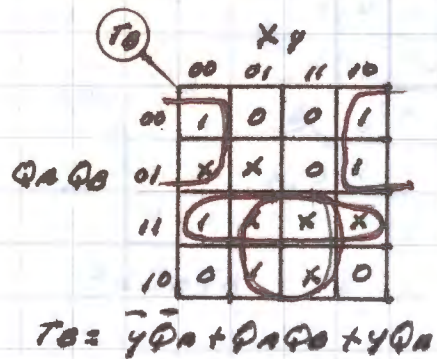 TB
X y
00 01 11 10
00 1 0 0 1
QA QB 01 X X 0 1
11 1 X X X
10 0 X X 0
TB = y̅Q̅A + QAQB + yQA